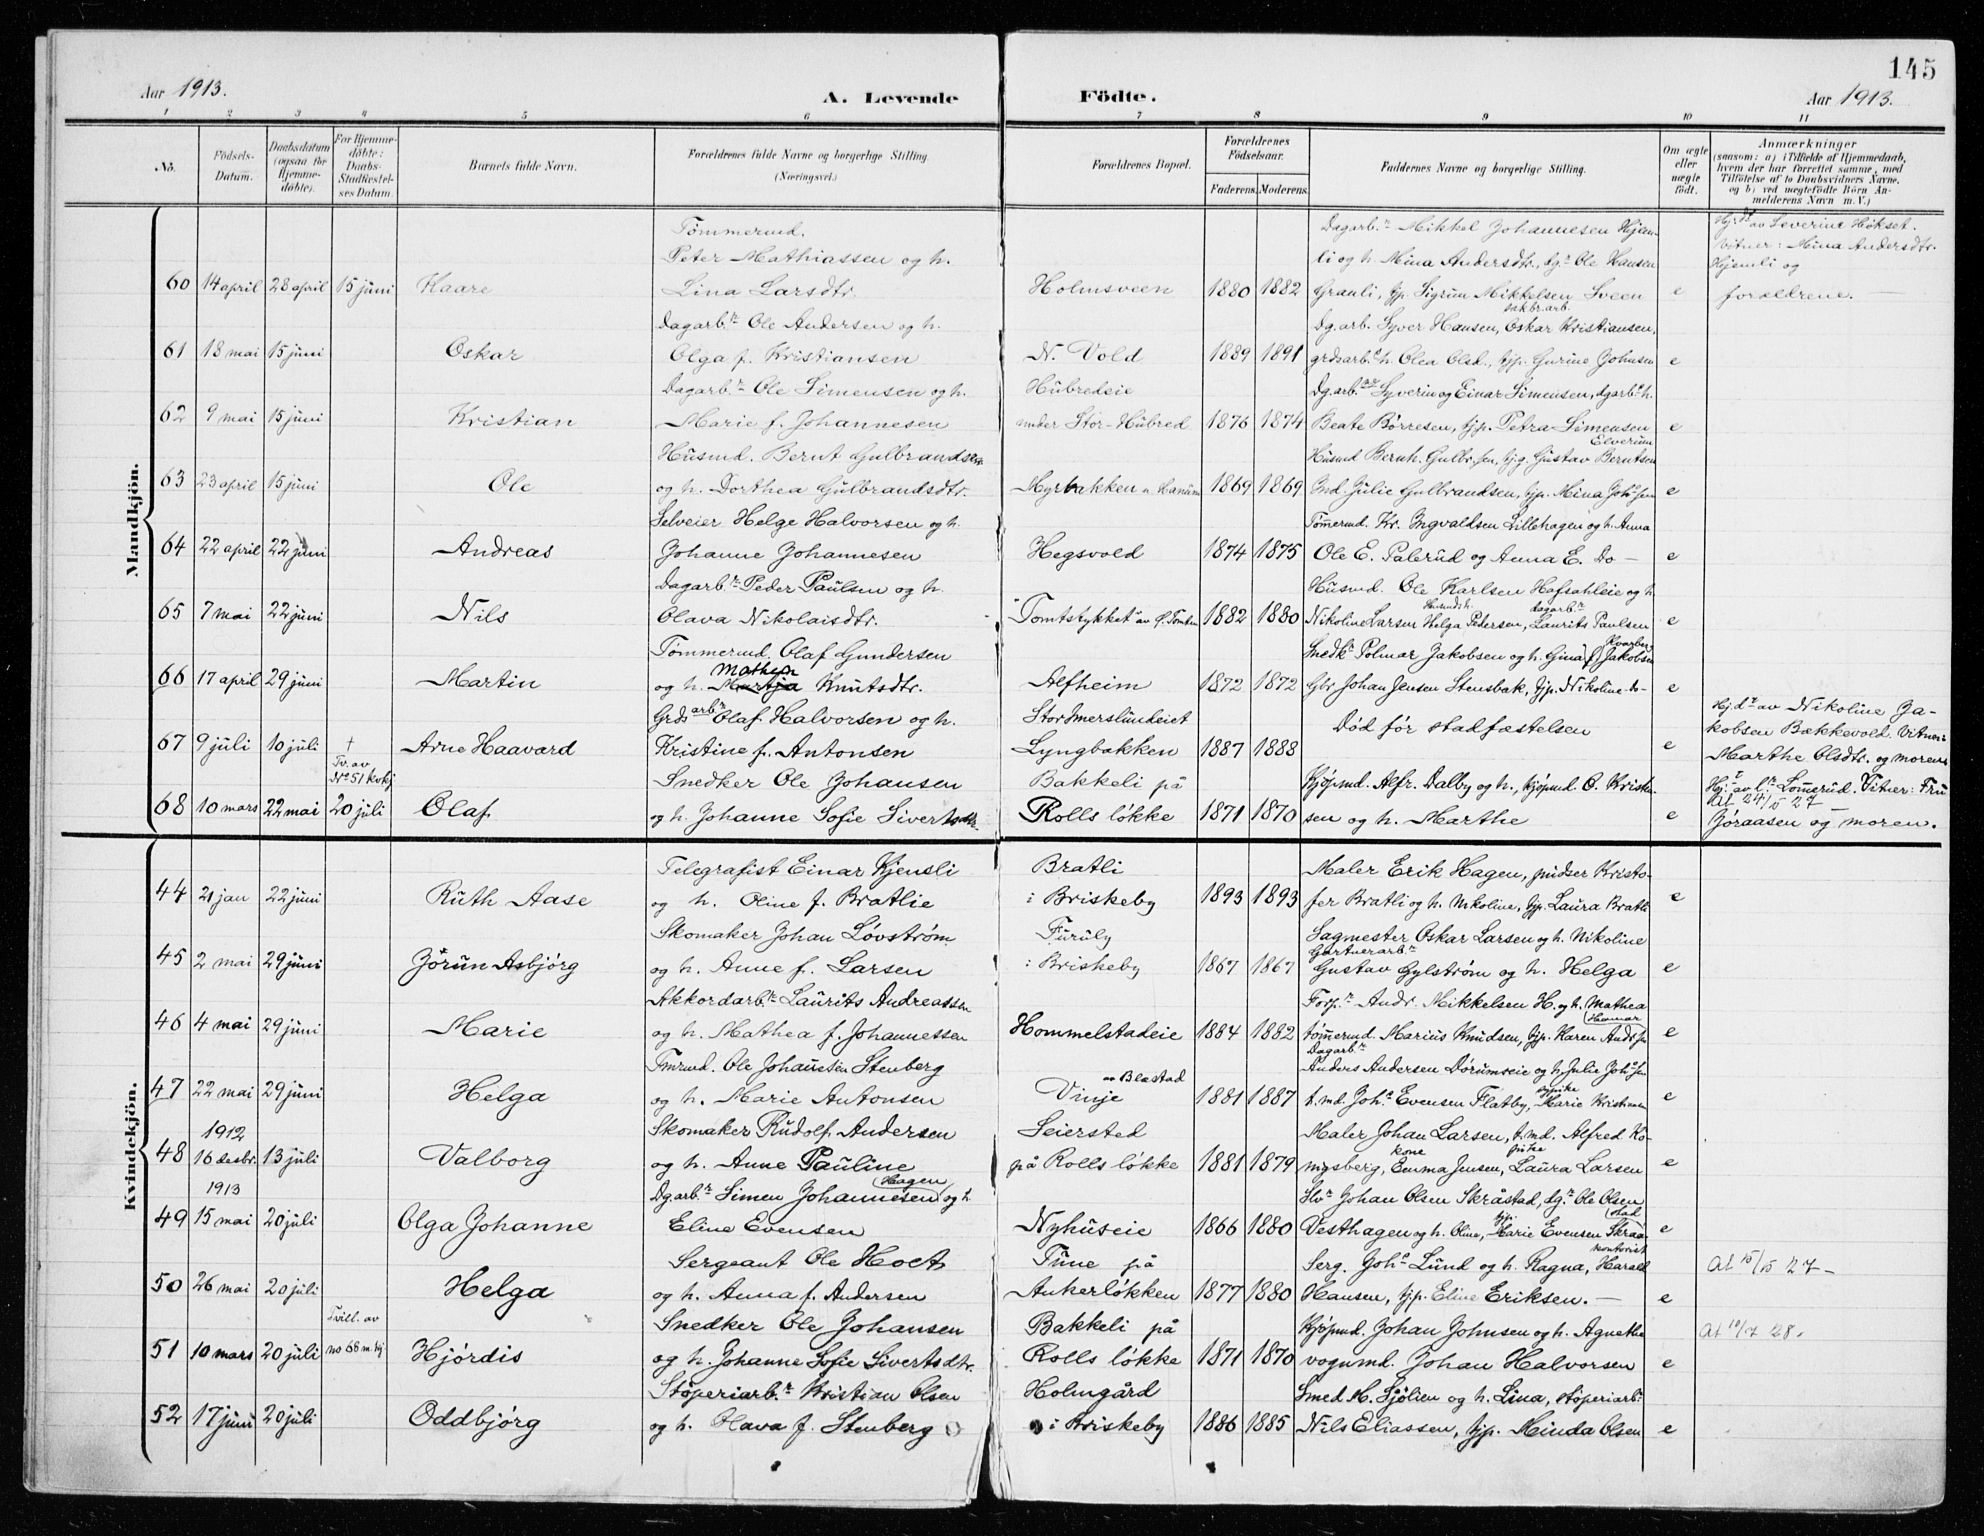 145
Aar 1913.
A. Levende
Födte.
Aar 1913.
1 2 3 4 5 6 7 8 9 10 11
No.
Födsels-Datum.
Daabsdatum (ogsaa for Hjemme-döbte).
For Hjemme-döbte: Daabs-Stadfæstel-ses Datum.
Barnets fulde Navn.
Forældrenes fulde Navne og borgerlige Stilling.
(Næringsvei.)
Forældrenes Bopæl.
Forældrenes Födselsaar.
Faderens. Moderens.
Faddernes Navne og borgerlige Stilling.
Om ægte eller uægte födt.
Anmærkninger
(saasom: a) i Tilfælde af Hjemmedaab, hvem der har forrettet samme, med Tilföielse af to Daabsvidners Navne, og b) ved uægtefödte Börn An-melderens Navn m. V.)
Mandkjön.
60 14 april 28 april 15 juni Kaare
Tömmermd.
Peter Mathiassen og h.
Lina Larsdtr.
Holmsveen 1880 1882
Dagarb.r Mikkel Johannesen Hjem-
li og h. Mina Andersdtr., dg.r Ole Hansen
Granli, tjp. Sigrun Mikkelsen Sveen
e
Hj.d. av Severine Hökset.
Vitner: Mina Andersdtr.
Hjemli og
forældrene.
61 18 mai 15 juni Oskar
Dagarb.r Ole Andersen og h.
Olga f. Kristiansen
N. Vold 1889 1891
Dg.arb. Syver Hansen, Oskar Kristiansen,
grdsarb. h. Olea Olsd., tjp. Gurine Johnsen
e
62 9 mai 15 juni Kristian
Dagarb.r Ole Simensen og h.
Marie f. Johannesen
Hübredeie
under Stor-Hübred 1876 1874
Dg.arb. Syverin og Einar Simensen, dgarb. h.
Beate Börresen, tjp. Petra Simensen
e
63 23 april 15 juni Ole
Husmd. Bernt Gulbrandsen
og h. Dorthea Gulbrandsdtr.
Myrbakken u. Hanum 1869 1869
Elverum
Husmd Bernh. Gulbr.sen, Gustav Berntsen
Julie Gulbrandsen, tjp. Mina Joh.sen
e
64 22 april 22 juni Andreas
Selveier Helge Halvorsen og h.
Johanne Johannesen
Hegsvold 1874 1875
Tömermd. Kr. Ingvaldsen Lillehagen og h. Anna
Ole E. Palerud og Anna E. Do —
e
65 7 mai 22 juni Nils
Dagarb.r Peder Paulsen og h.
Olava Nikolaisdtr.
"Tomtstykket" av Ö. Tomten 1882 1880
Husmd. Ole Karlsen Hafsahleie og h.
Husmds h. dagarb.r
Nikoline Larsen Helga Pedersen, Laurits Paulsen
e
66 17 april 29 juni Martin
Tömmermd. Olaf Gundersen
Mathea
og h. Martja Knutsdtr.
Alfheim 1872 1872
Snedk.r Polmar Jakobsen og h. Gina Jakobsen
Gbr. Johan Jensen Stensbak, tjp. Nikoline do-
e
67 9 juli 10 juli † Arne Haavard
Grdsarb.r Olaf Halvorsen og h.
Kristine f. Antonsen
Stormerslundeiet
Lyngbakken 1887 1888
Död för stadfæstelsen
e
Hj.d. av Nikoline Ja-
kobsen Bækkevold. Vitner:
Marthe Olsdtr. og moren.
Tv. av
No 51 kvkj
68 10 mars 22 mai 20 juli Olaf
Snedker Ole Johansen
og h. Johanne Sofie Sivertsdtr.
Bakkeli på
Rolls lökke 1871 1870
Kjöpmd. Alfr. Dalby og h., kjöpmd. O. Kristen-
sen og h. Marthe
e
Hj. av l. Lömerud. Vitner: Fru
At 24/5 27 —
Jöraasen og moren.
Kvindekjön.
44 21 jan 22 juni Ruth Aase
Telegrafist Einar Kjensli
og h. Oline f. Bratlie
Bratli
i Briskeby 1893 1893
Maler Erik Hagen, pudser Kristo-
fer Bratli og h. Nikoline, tjp. Laura Bratli
e
45 2 mai 29 juni Jörun Asbjörg
Skomaker Johan Lövström
og h. Anne f. Larsen
Furuly
i Briskeby 1867 1867
Sagmester Oskar Larsen og h. Nikoline
Gartnerarb.r
Gustav Gylström og h. Helga
e
46 4 mai 29 juni Marie
Akkordarb.r Laurits Andreassen
og h. Mathea f. Johannessen
Hommelstadeie 1884 1882
Forp.r Andr. Mikkelsen H. og h. Mathea
Hamar
tömermd. Marius Knudsen, tjp. Karen Ands.sen
e
47 22 mai 29 juni Helga
Tmrmd. Ole Johansen Stenberg
og h. Marie Antonsen
av Blæstad
Vinje 1881 1887
Dagarb.r
Anders Andersen Dörumseie og h. Julie Joh.sen
sypike
t.md. Joh.s Evensen Flatby, Marie Kristiansen
e
1912
48 16 desbr. 13 juli Valborg
Skomaker Rudolf Andersen
og h. Anne Pauline
Seiersted
på Rolls lökke 1881 1879
Maler Johan Larsen, t.md. Alfred Ko-
kone pike
ngsberg, Emma Jensen, Laura Larsen
e
1913
49 15 mai 20 juli Olga Johanne
Hagen
Dg.arb.r Simen Johannesen og h.
Eline Evensen
Nyhuseie 1866 1880
Slv.r Johan Olsen Skråstad, dg.r Ole Olsen
tjp. stad
Vesthagen og h. Oline, Marie Evensen Skraa
e
50 26 mai 20 juli Helga
Sergeant Ole Hoet
og h. Anna f. Andersen
Tune på
Ankerlökken 1877 1880
kontorist
Serg. Joh.s Lund og h. Ragna, Harald
Hansen, tjp. Eline Eriksen. —
e
At 15/5 27 —
Tvill. av
no 68 m.kj
51 10 mars 20 juli Hjördis
Snedker Ole Johansen
og h. Johanne Sofie Sivertsdtr.
Bakkeli på
Rolls lökke 1871 1870
Kjöpmd. Johan Johnsen og h. Agnethe
vognmd. Johan Halvorsen
e
At 10/7 28.
52 17 juni 20 juli Oddbjörg
Stöperiarb.r Kristian Olsen
og h. Olava f. Stenberg
Holmgård
i Briskeby 1886 1885
Smed M. Sjölien og h. Lina, stöperiarb.
Nils Eliassen, tjp. Minda Olsen
e